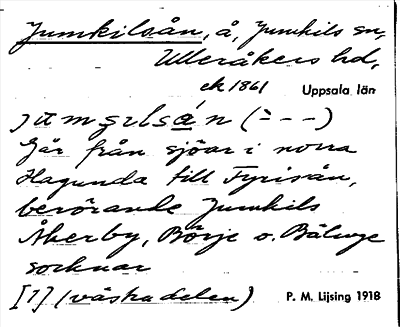 Jumkilsån, å, Jumkils sn,
Ulleråkers hd,
ek 1861 Uppsala län
(- - -)
Går från sjöar i norra
Hagunda till Fyrisån,
berörande Jumkils
Åkerby, Börje o. Bälinge
socknar
[1] (västra delen) P. M. Lijsing 1918